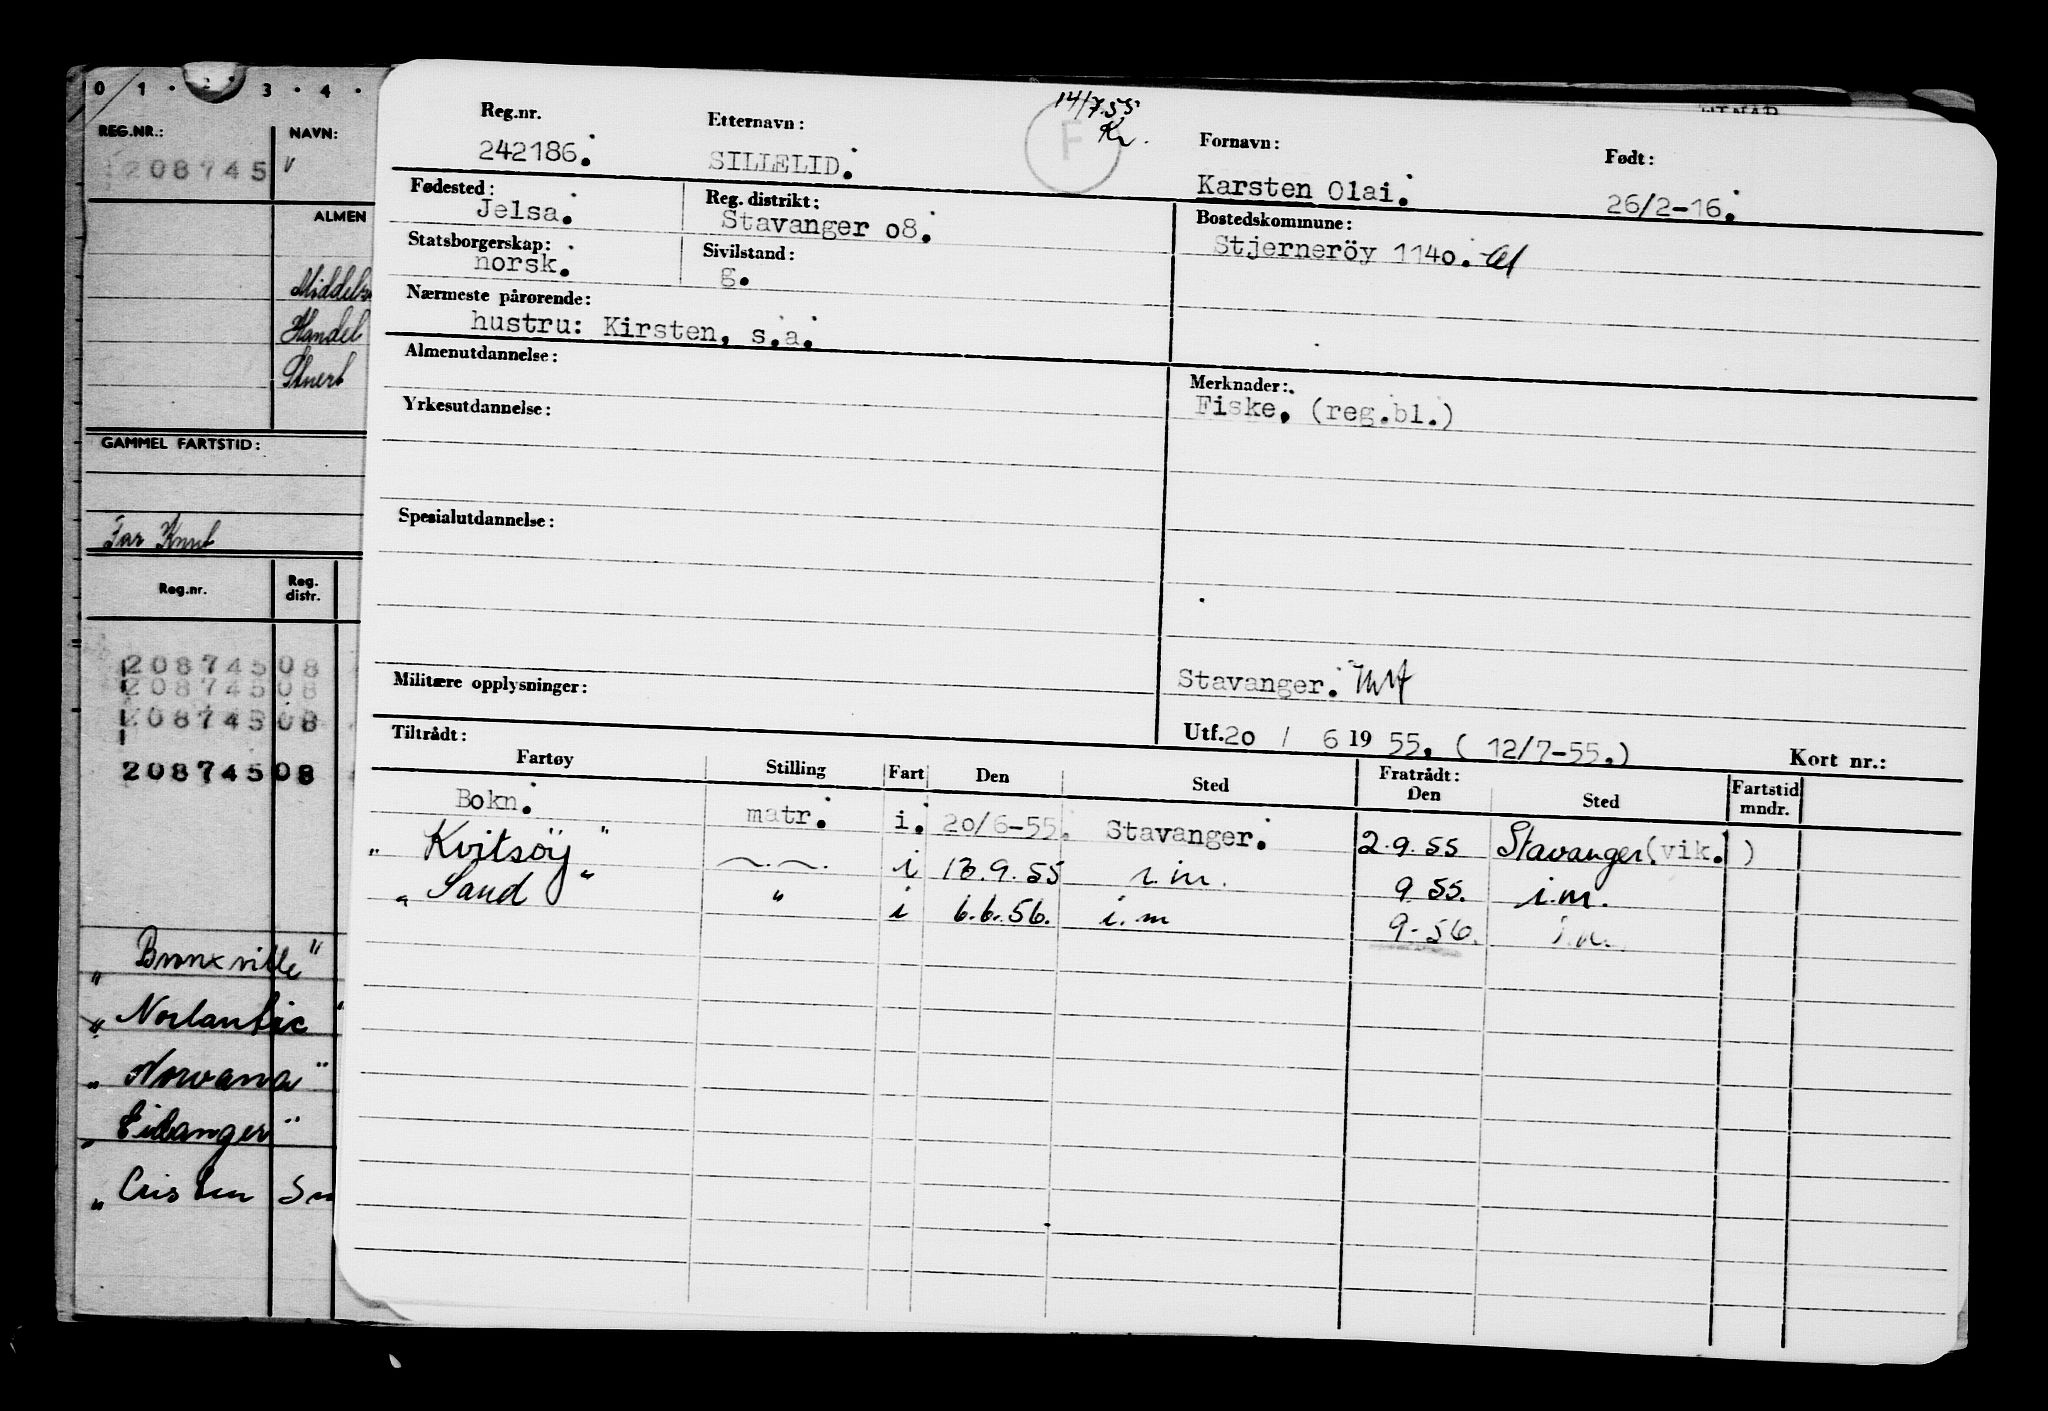 0 1 · 2 · 3 · 4 ·
REG.NR.: NAVN:
208745 v
ALMEN
Handel
GAMMEL FARTSTID:
Far Knut
Reg.nr. Reg. distr.
20874508
20874508
20874508
20874508
" Bronxville "
" Norlantic "
" Norvana "
" Eidanger "
"
14/7.55
Kr.
F
Reg.nr. Etternavn: Fornavn: Født:
242186. SILLELID. Karsten Olai. 26/2-16.
Fødested: Reg. distrikt: Bostedskommune:
Jelsa. Stavanger o8. Stjerneröy 114o.
Statsborgerskap: Sivilstand:
norsk. g.
Nærmeste pårørende:
hustru: Kirsten, s.a.
Almenutdannelse: Merknader:
Yrkesutdannelse: Fiske. (reg.bl.)
Spesialutdannelse:
Militære opplysninger: Stavanger.
Utf. 2o / 6 19 55. ( 12/7-55.) Kort nr.:
Tiltrådt: Fratrådt:
Fartøy Stilling Fart Den Sted Den Sted Fartstid mndr.
Bokn. matr. i. 2o/6-55. Stavanger. 2.9.55 Stavanger (vik.)
" Kvitsøy " —.—. i 13.9.55 i.m. 9 55. i.m.
" Sand " " i 6.6.56. i.m 9-56. i.m.